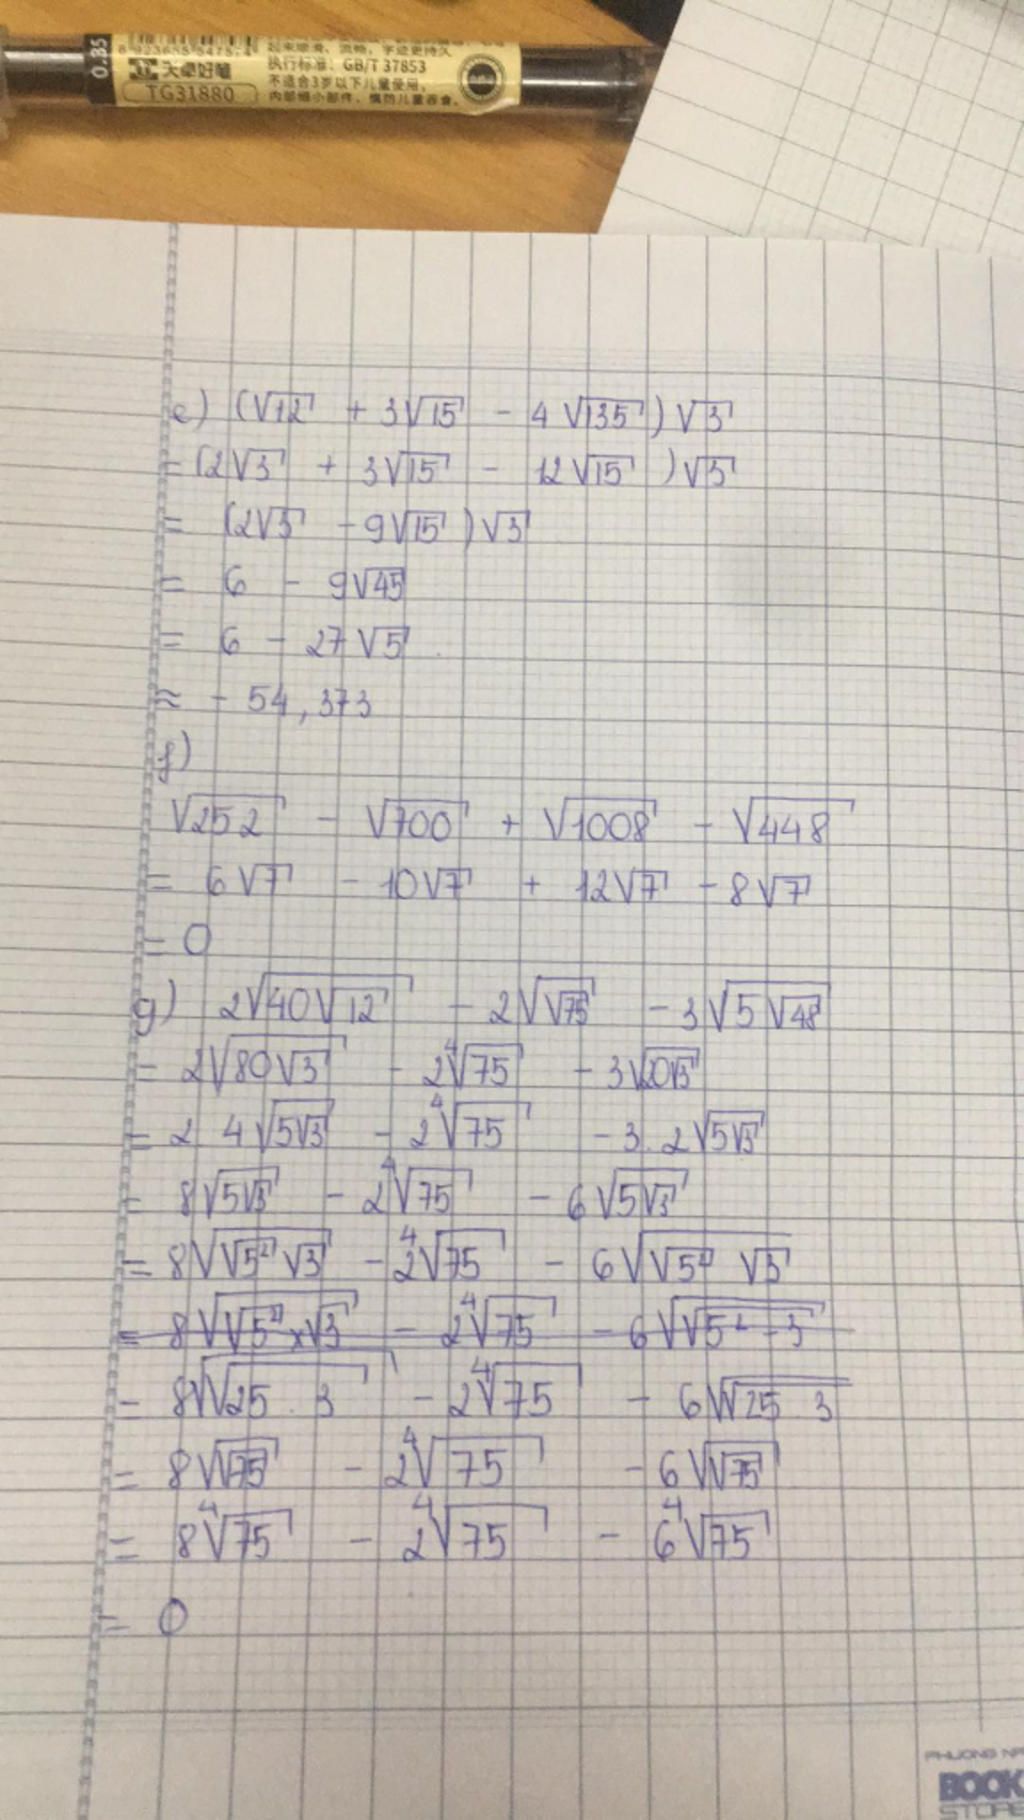 0.35
8 923655 547574
起来顺滑、流畅，字迹更持久
大卓好笔
执行标准：GB/T 37853
TG31880
不适合3岁以下儿童使用，
内部细小部件，慎防儿童吞食。
e) (√12 + 3√15 - 4√135)√3
= (2√3 + 3√15 - 12√15)√3
= (2√3 - 9√15)√3
= 6 - 9√45
= 6 - 27√5
≈ -54,373
f)
√252 - √700 + √1008 - √448
= 6√7 - 10√7 + 12√7 - 8√7
= 0
g) 2√(40√12) - 2√(√75) - 3√(5√48)
= 2√(80√3) - 2⁴√75 - 3√(20√3)
= 2 4√(5√3) - 2⁴√75 - 3.2√(5√3)
= 8√(5√3) - 2⁴√75 - 6√(5√3)
= 8√(√5² √3) - 2⁴√75 - 6√(√5² √3)
= 8√(√5² × √3) - 2⁴√75 - 6√(√5² - 3)
= 8√√(25 . 3) - 2⁴√75 - 6√√(25 3)
= 8√√75 - 2⁴√75 - 6√√75
= 8⁴√75 - 2⁴√75 - 6⁴√75
= 0
PHUONG NA
BOOK
STORE